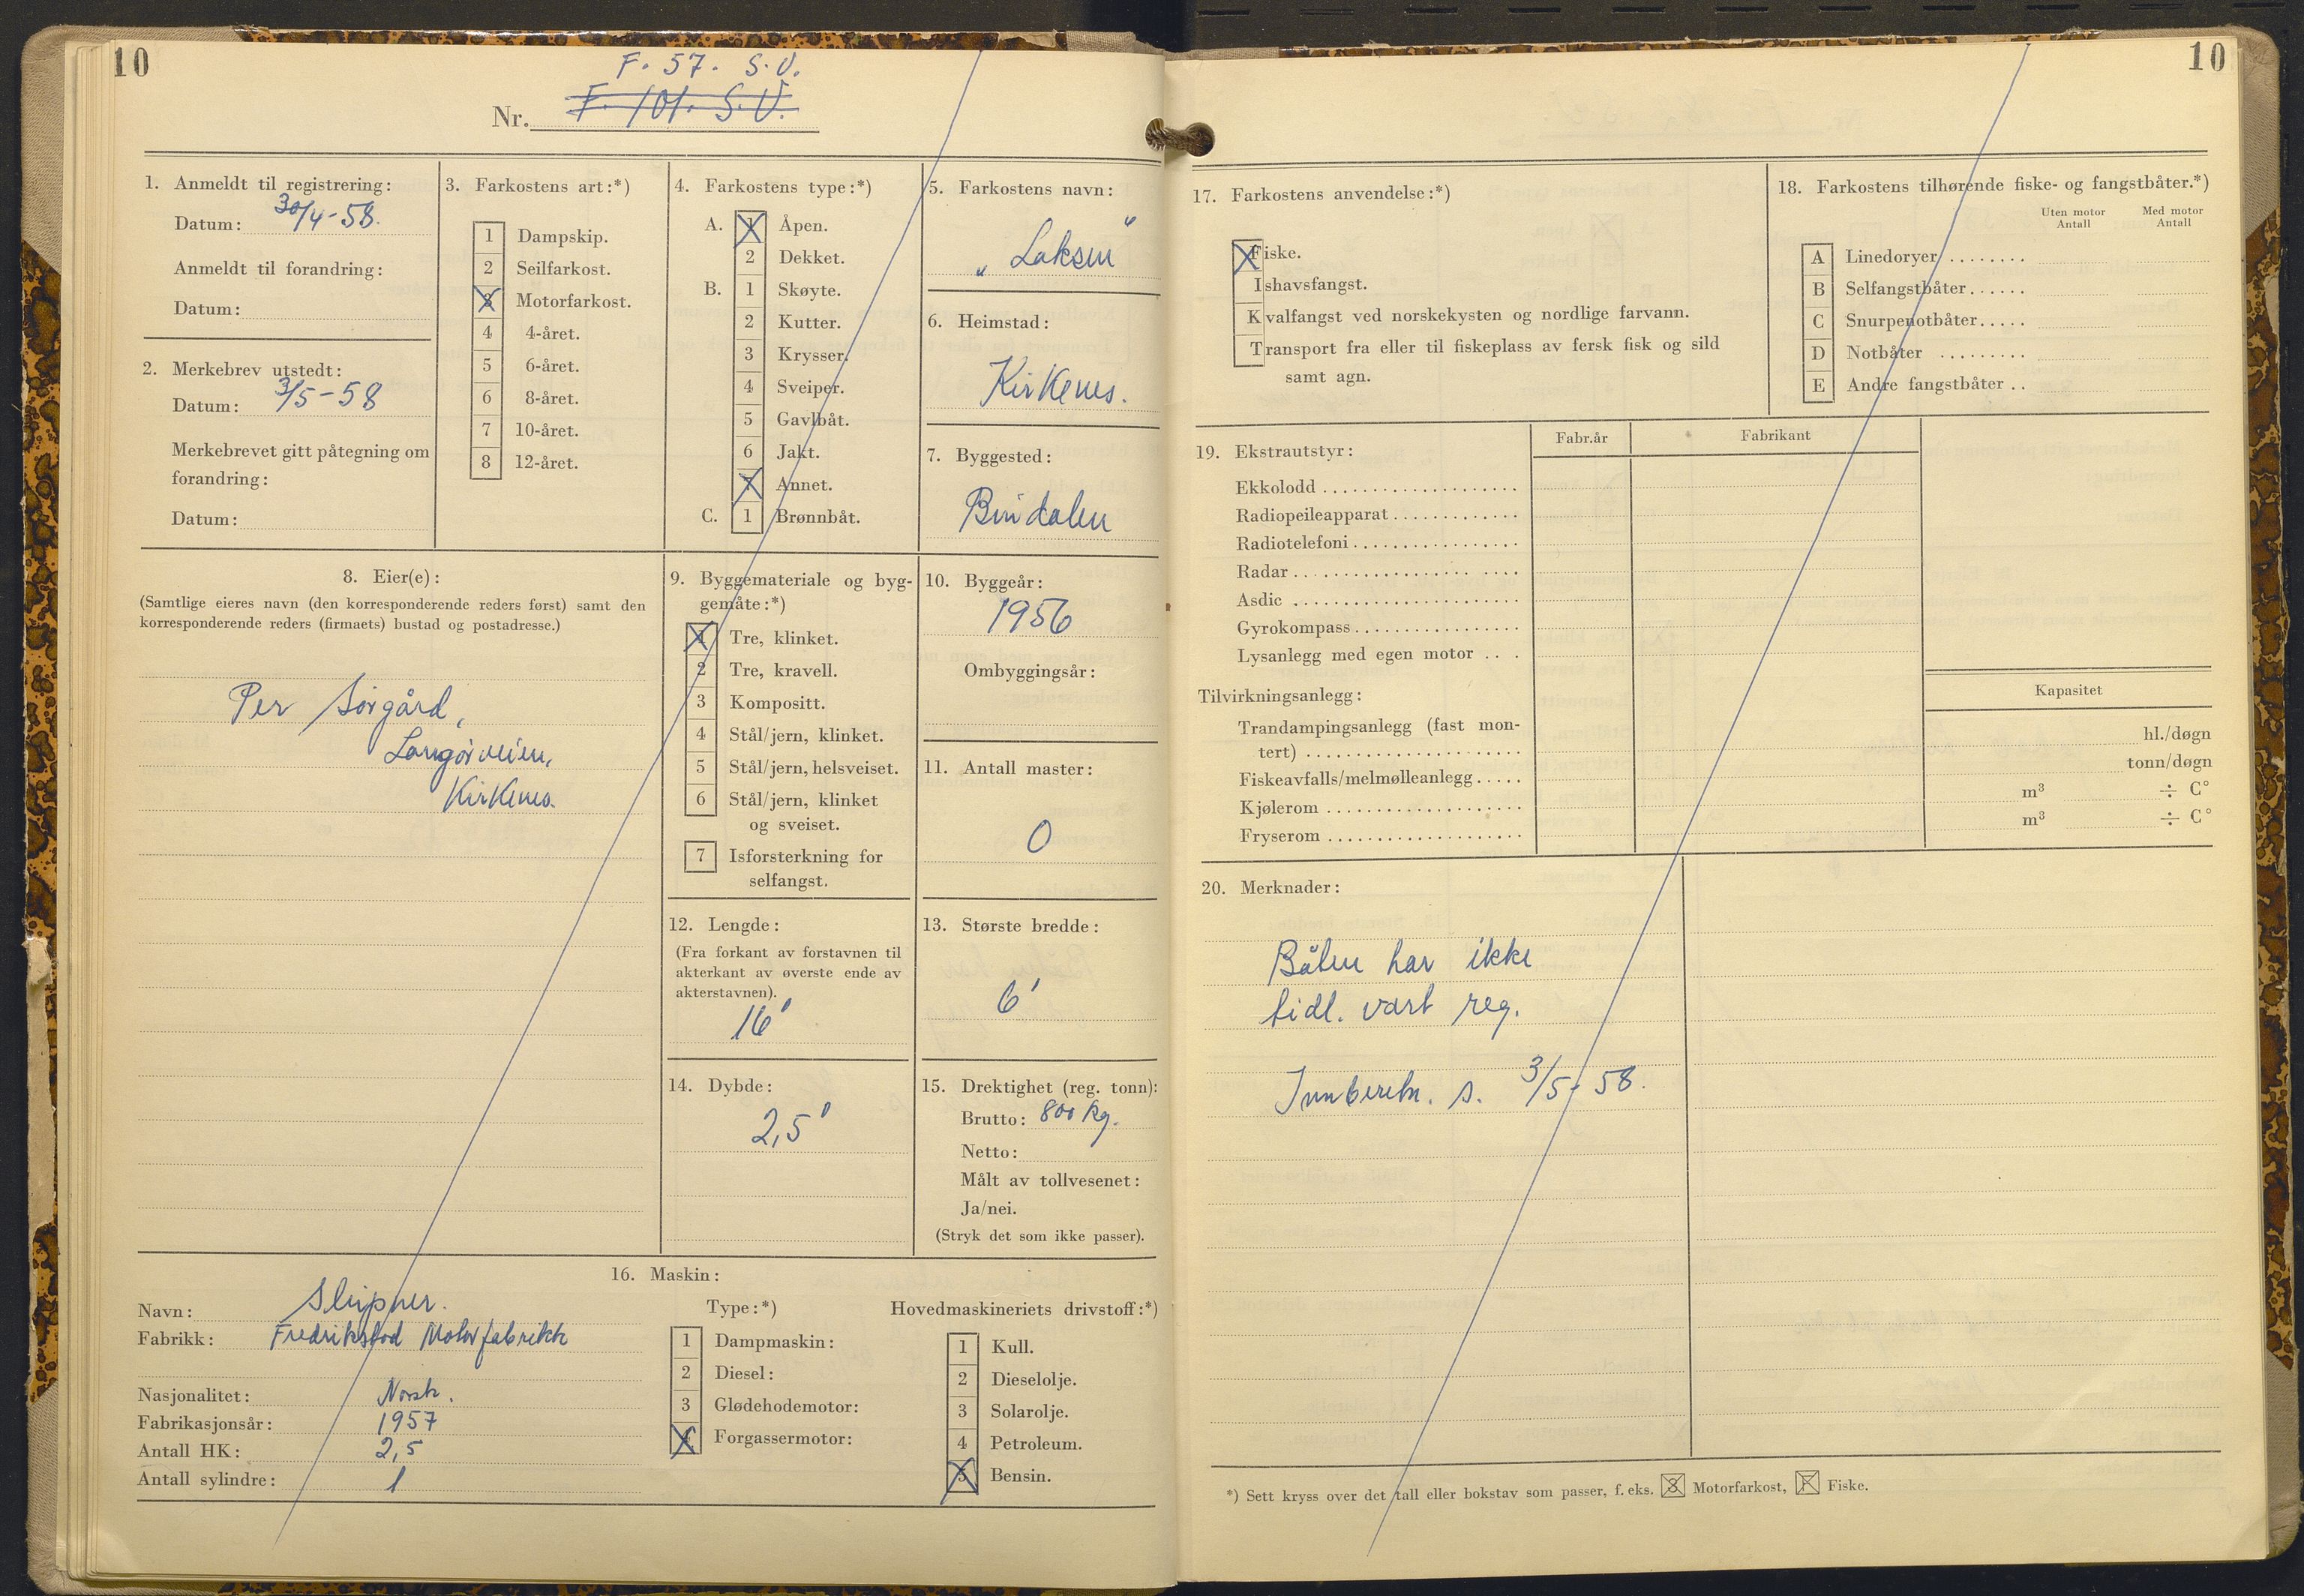 10
F. 57. S.V.
Nr. F. 101. S.V.
1. Anmeldt til registrering:
Datum: 30/4-58.
Anmeldt til forandring:
Datum:
2. Merkebrev utstedt:
Datum: 3/5-58
Merkebrevet gitt påtegning om
forandring:
Datum:
3. Farkostens art:*)
1 Dampskip.
2 Seilfarkost.
3 Motorfarkost.
4 4-året.
5 6-året.
6 8-året.
7 10-året.
8 12-året.
4. Farkostens type:*)
A. 1 Åpen.
2 Dekket.
B. 1 Skøyte.
2 Kutter.
3 Krysser.
4 Sveiper.
5 Gavlbåt.
6 Jakt.
7 Annet.
C. 1 Brønnbåt.
5. Farkostens navn:
"Laksen"
6. Heimstad:
Kirkenes.
7. Byggested:
Bindalen
8. Eier(e):
(Samtlige eieres navn (den korresponderende reders først) samt den
korresponderende reders (firmaets) bustad og postadresse.)
Per Sørgård,
Langørveien,
Kirkenes.
9. Byggemateriale og byg-
gemåte:*)
1 Tre, klinket.
2 Tre, kravell.
3 Kompositt.
4 Stål/jern, klinket.
5 Stål/jern, helsveiset.
6 Stål/jern, klinket
og sveiset.
7 Isforsterkning for
selfangst.
10. Byggeår:
1956
Ombyggingsår:
11. Antall master:
0
12. Lengde:
(Fra forkant av forstavnen til
akterkant av øverste ende av
akterstavnen).
16'
13. Største bredde:
6'
14. Dybde:
2,5'
15. Drektighet (reg. tonn):
Brutto: 800 kg.
Netto:
Målt av tollvesenet:
Ja/nei.
(Stryk det som ikke passer).
16. Maskin:
Navn: Sleipner.
Fabrikk: Fredrikstad Motorfabrikk
Nasjonalitet: Norsk.
Fabrikasjonsår: 1957
Antall HK: 2,5
Antall sylindre: 1
Type:*)
1 Dampmaskin:
2 Diesel:
3 Glødehodemotor:
4 Forgassermotor:
Hovedmaskineriets drivstoff:*)
1 Kull.
2 Dieselolje.
3 Solarolje.
4 Petroleum.
5 Bensin.
10
17. Farkostens anvendelse:*)
Fiske.
Ishavsfangst.
Kvalfangst ved norskekysten og nordlige farvann.
Transport fra eller til fiskeplass av fersk fisk og sild
samt agn.
18. Farkostens tilhørende fiske- og fangstbåter.*)
Uten motor Med motor
Antall Antall
A Linedoryer ........
B Selfangstbåter......
C Snurpenotbåter.....
D Notbåter .........
E Andre fangstbåter ..
Fabr.år Fabrikant
19. Ekstrautstyr:
Ekkolodd ....................
Radiopeileapparat .............
Radiotelefoni .................
Radar .......................
Asdic .......................
Gyrokompass .................
Lysanlegg med egen motor ...
Kapasitet
Tilvirkningsanlegg:
Trandampingsanlegg (fast mon-
tert) ...................... hl./døgn
Fiskeavfalls/melmølleanlegg ..... tonn/døgn
Kjølerom .................... m³ ÷ C°
Fryserom .................... m³ ÷ C°
20. Merknader:
Båten har ikke
tidl. vært reg.
Innberetn. s. 3/5-58.
*) Sett kryss over det tall eller bokstav som passer, f. eks. 3 Motorfarkost, F Fiske.